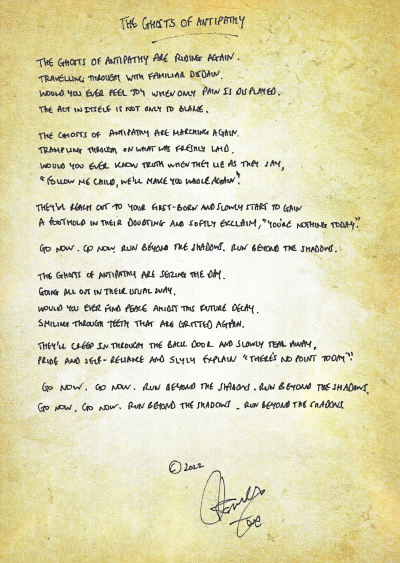 THE GHOSTS OF ANTIPATHY
THE GHOSTS OF ANTIPATHY ARE RIDING AGAIN.
TRAVELLING THROUGH WITH FAMILIAR DISDAIN.
WOULD YOU EVER FEEL JOY WHEN ONLY PAIN IS DISPLAYED.
THE ACT IN ITSELF IS NOT ONLY TO BLAME.
THE GHOSTS OF ANTIPATHY ARE MARCHING AGAIN.
TRAMPLING THROUGH ON WHAT WAS FRESHLY LAID.
WOULD YOU EVER KNOW TRUTH WHEN THEY LIE AS THEY SAY,
"FOLLOW ME CHILD, WE'LL MAKE YOU WHOLE AGAIN".
THEY'LL REACH OUT TO YOUR FIRST-BORN AND SLOWLY START TO GAIN
A FOOTHOLD IN THEIR DOUBTING AND SOFTLY EXCLAIM, "YOU'RE NOTHING TODAY."
GO NOW. GO NOW. RUN BEYOND THE SHADOWS. RUN BEYOND THE SHADOWS.
THE GHOSTS OF ANTIPATHY ARE SEIZING THE DAY.
GOING ALL OUT IN THEIR USUAL WAY.
WOULD YOU EVER FIND PEACE AMIDST THIS FUTURE DECAY.
SMILING THROUGH TEETH THAT ARE GRITTED AGAIN.
THEY'LL CREEP IN THROUGH THE BACK DOOR AND SLOWLY TEAR AWAY,
PRIDE AND SELF-RELIANCE AND SLYLY EXPLAIN "THERE'S NO POINT TODAY".
GO NOW. GO NOW. RUN BEYOND THE SHADOWS. RUN BEYOND THE SHADOWS.
GO NOW. GO NOW. RUN BEYOND THE SHADOWS. RUN BEYOND THE SHADOWS.
© 2022